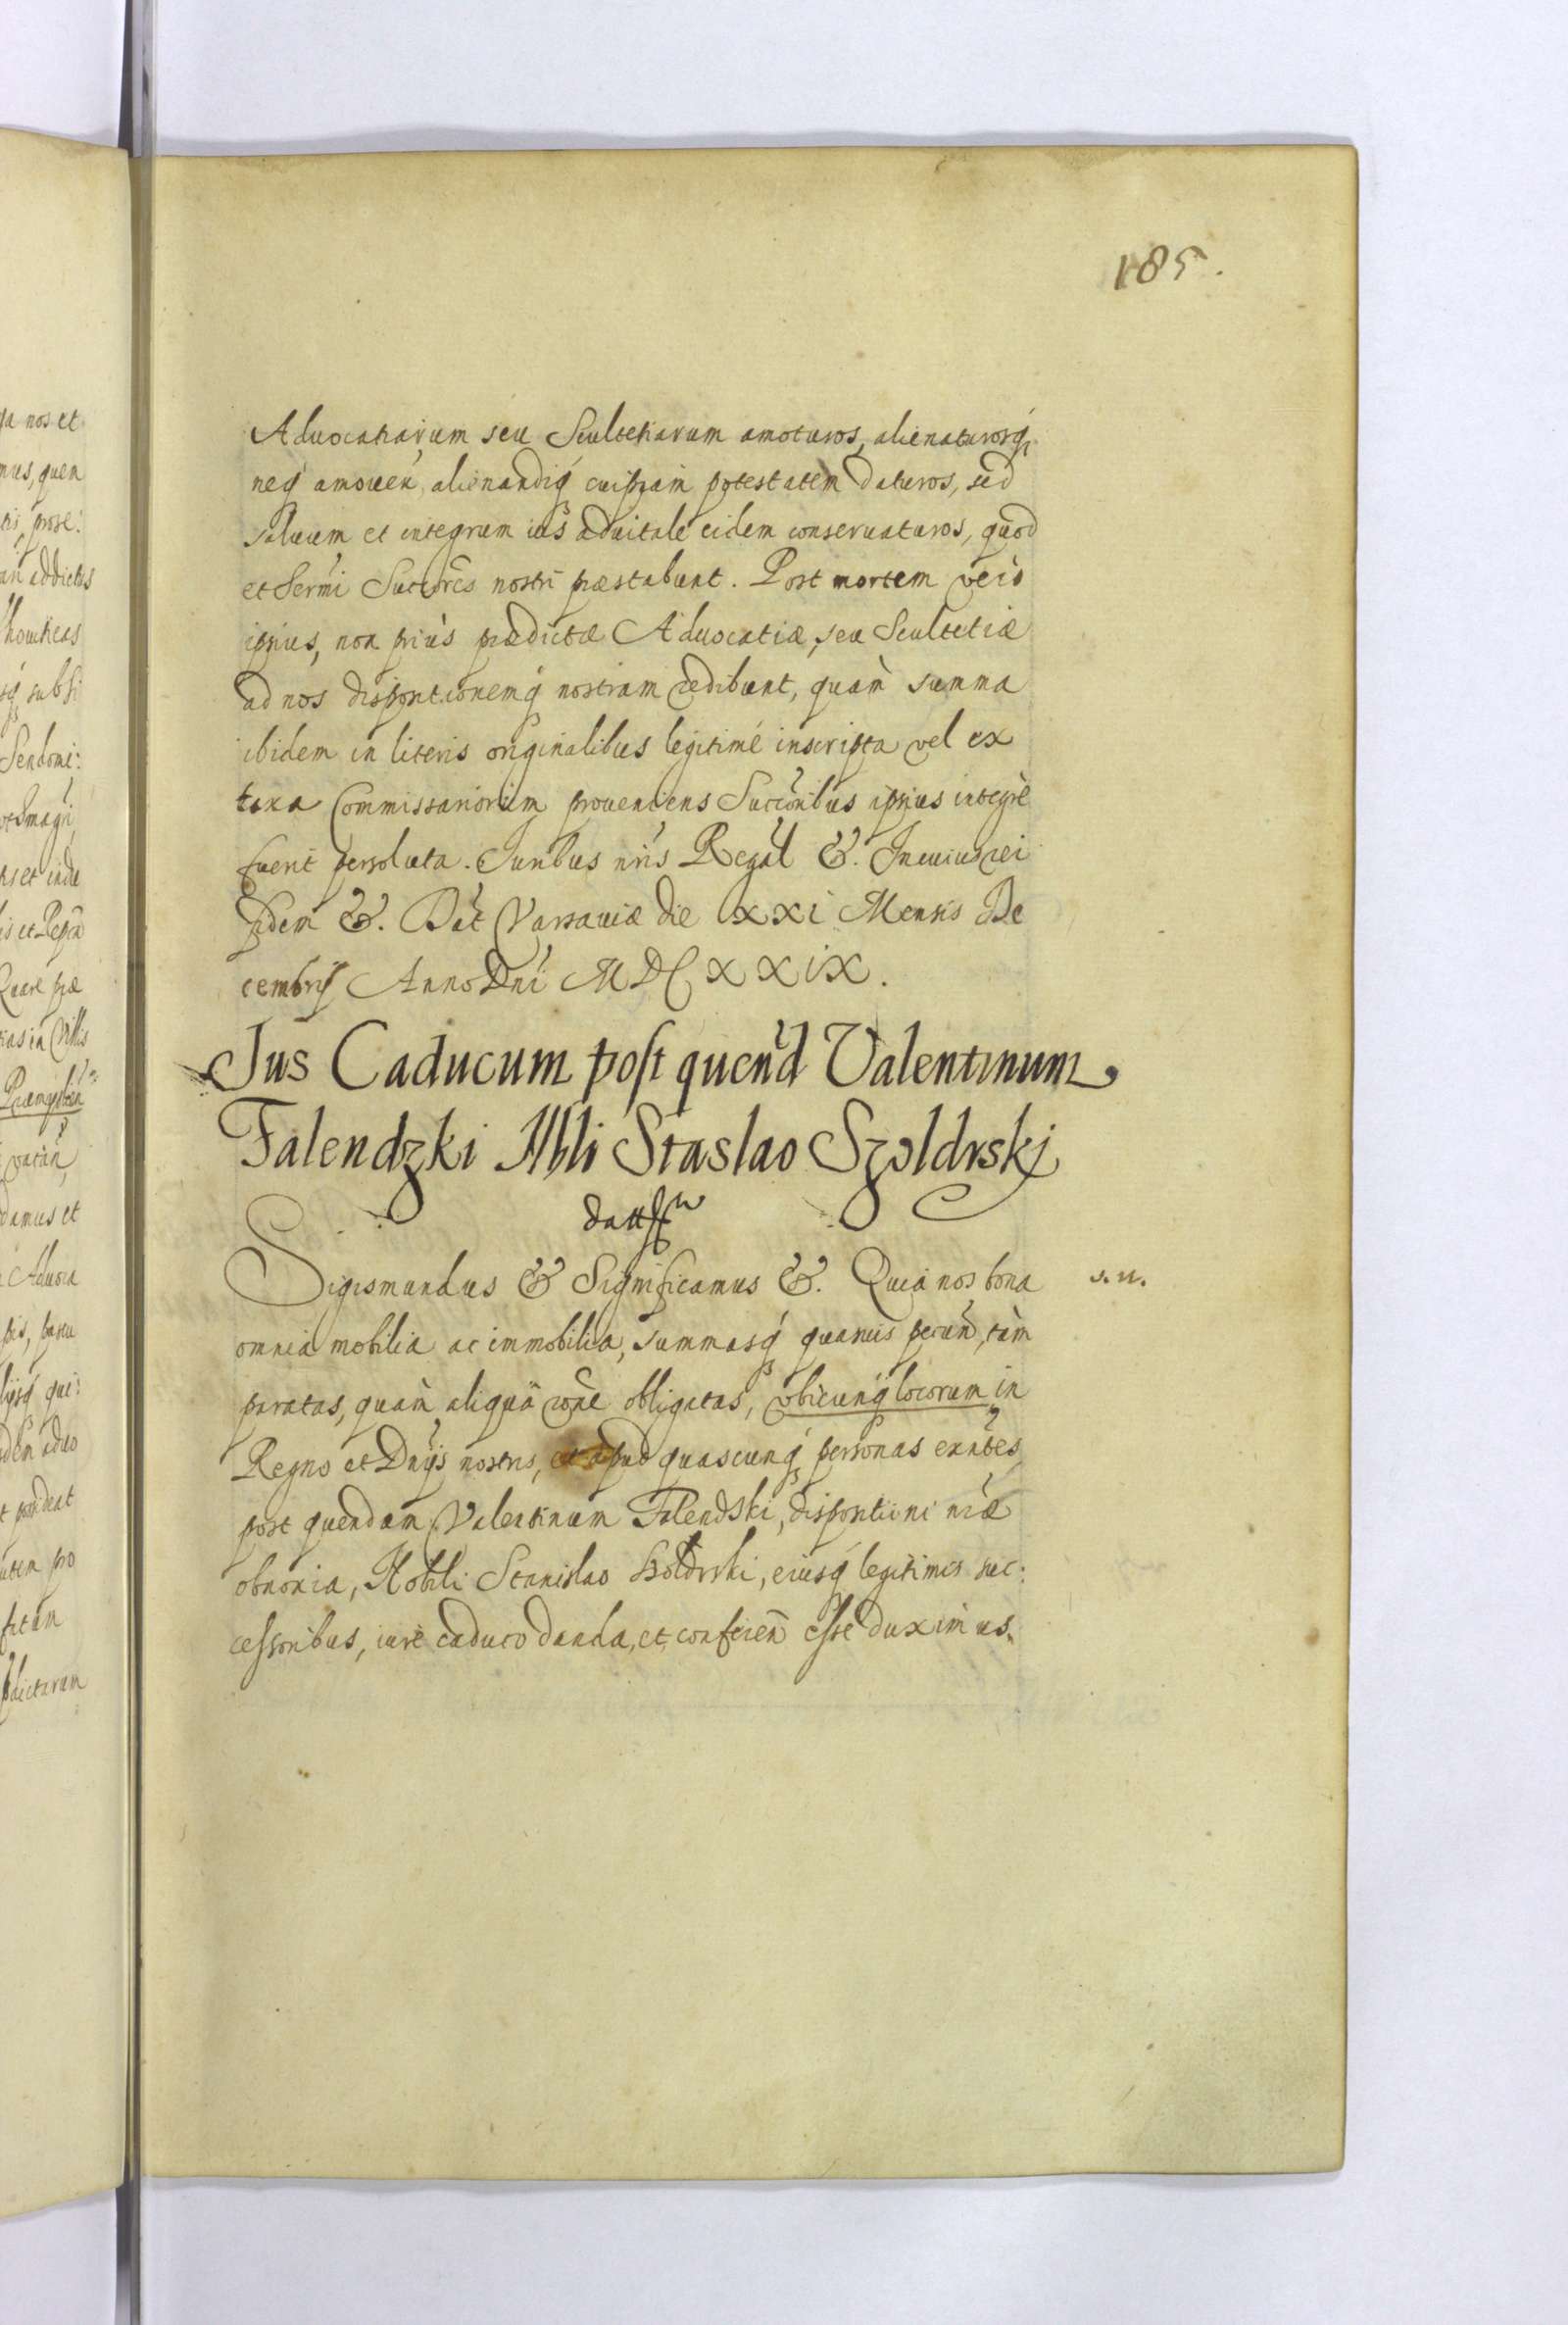 185.
Aduocatiarum seu Scultetiarum amoturos, alienaturosq́
neq́ amouen̄, alienandiq́ cuipiam potestatem daturos, sed
saluum et integrum ius aduitale eidem conseruaturos, quod
et Ser̄mi Succ̄ores nostri præstabunt. Post mortem verò
ipsius, non prius prædictæ Aduocatiæ, seu Scultetiæ
ad nos dispositionemq́ nostram redibunt, quàm summa
ibidem in literis originalibus legitimé inscripta vel ex
taxa Commissariorum proueniens Succ̄oribus ipsius integrè
fuerit persoluta. Iuribus nr̄is Regal &. In cuius rei
fidem &. Dat̄ Varsauiæ die XXI Mensis De
cembris Anno Dn̄i MDCXXIX.
Jus Caducum post quen̄d Valentinum
Falendzki Nbli Staslao Szoldrskj
datt
Sigismundus & Significamus &. Quia nos bona
s. n.
omnia mobilia ac immobilia, summasq́ quasuis pecun̄, tàm
paratas, quàm aliquâ rōne obligatas, vbicunq́ locorum in
Regno et Dn̄ijs nostris, et apud quascunq́ personas exn̄tes
post quendam Valentinum Falendski, dispositioni nr̄æ
obnoxia, Nobili Stanislao Szoldrski, eiusq́ legitimis suc:
cessoribus, iure caduco danda, et conferen̄ esse duximus.
ja nos et
mus, quen
addictos
subsi
Sendomi:
et inde
Quare præ
Villis
damus et
Aduoca
qui:
pro